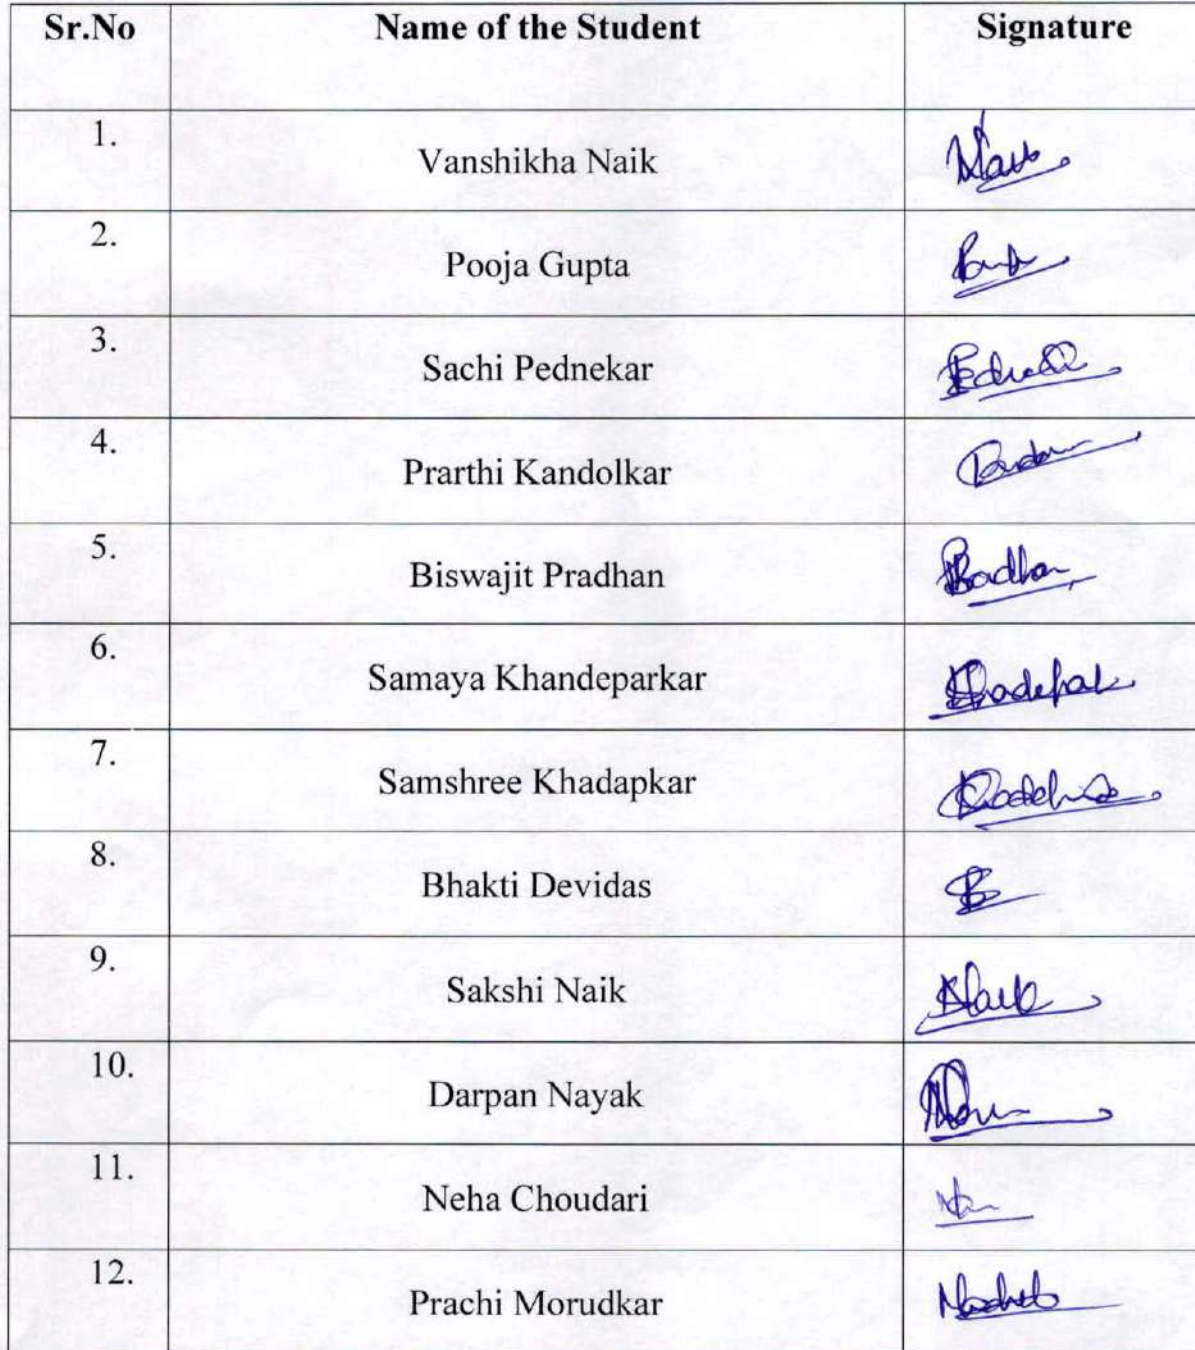 Sr.No Name of the Student Signature
1. Vanshikha Naik
2. Pooja Gupta
3. Sachi Pednekar
4. Prarthi Kandolkar
5. Biswajit Pradhan
6. Samaya Khandeparkar
7. Samshree Khadapkar
8. Bhakti Devidas
9. Sakshi Naik
10. Darpan Nayak
11. Neha Choudari
12. Prachi Morudkar